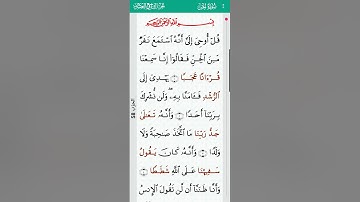 سورة الجن
بِسْمِ اللَّهِ الرَّحْمَٰنِ الرَّحِيمِ
قُلْ أُوحِىَ إِلَىَّ أَنَّهُ ٱسْتَمَعَ نَفَرٌ
مِّنَ ٱلْجِنِّ فَقَالُوٓا۟ إِنَّا سَمِعْنَا
قُرْءَانًا عَجَبًا ۝١ يَهْدِىٓ إِلَى
ٱلرُّشْدِ فَـَٔامَنَّا بِهِۦ ۖ وَلَن نُّشْرِكَ
بِرَبِّنَآ أَحَدًا ۝٢ وَأَنَّهُۥ تَعَٰلَىٰ
جَدُّ رَبِّنَا مَا ٱتَّخَذَ صَٰحِبَةً وَلَا
وَلَدًا ۝٣ وَأَنَّهُۥ كَانَ يَقُولُ
سَفِيهُنَا عَلَى ٱللَّهِ شَطَطًا ۝٤
وَأَنَّا ظَنَنَّآ أَن لَّن تَقُولَ ٱلْإِنسُ